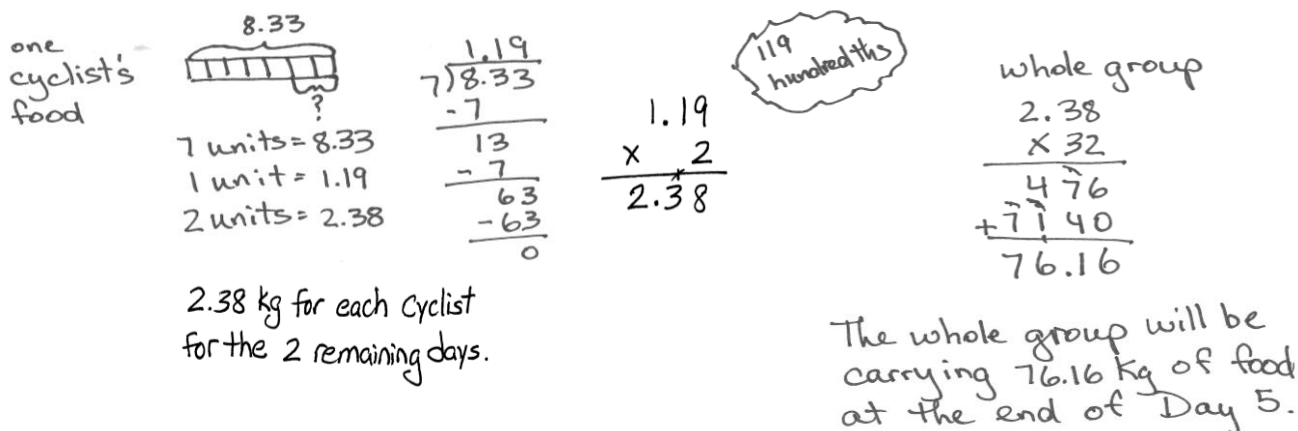 one
cyclist's
food
8.33
?
7 units = 8.33
1 unit = 1.19
2 units = 2.38
1.19
7)8.33
-7
13
- 7
63
-63
0
2.38 kg for each cyclist
for the 2 remaining days.
1.19
x 2
2.38
119
hundredths
whole group
2.38
x 32
476
+7140
76.16
The whole group will be
carrying 76.16 kg of food
at the end of Day 5.